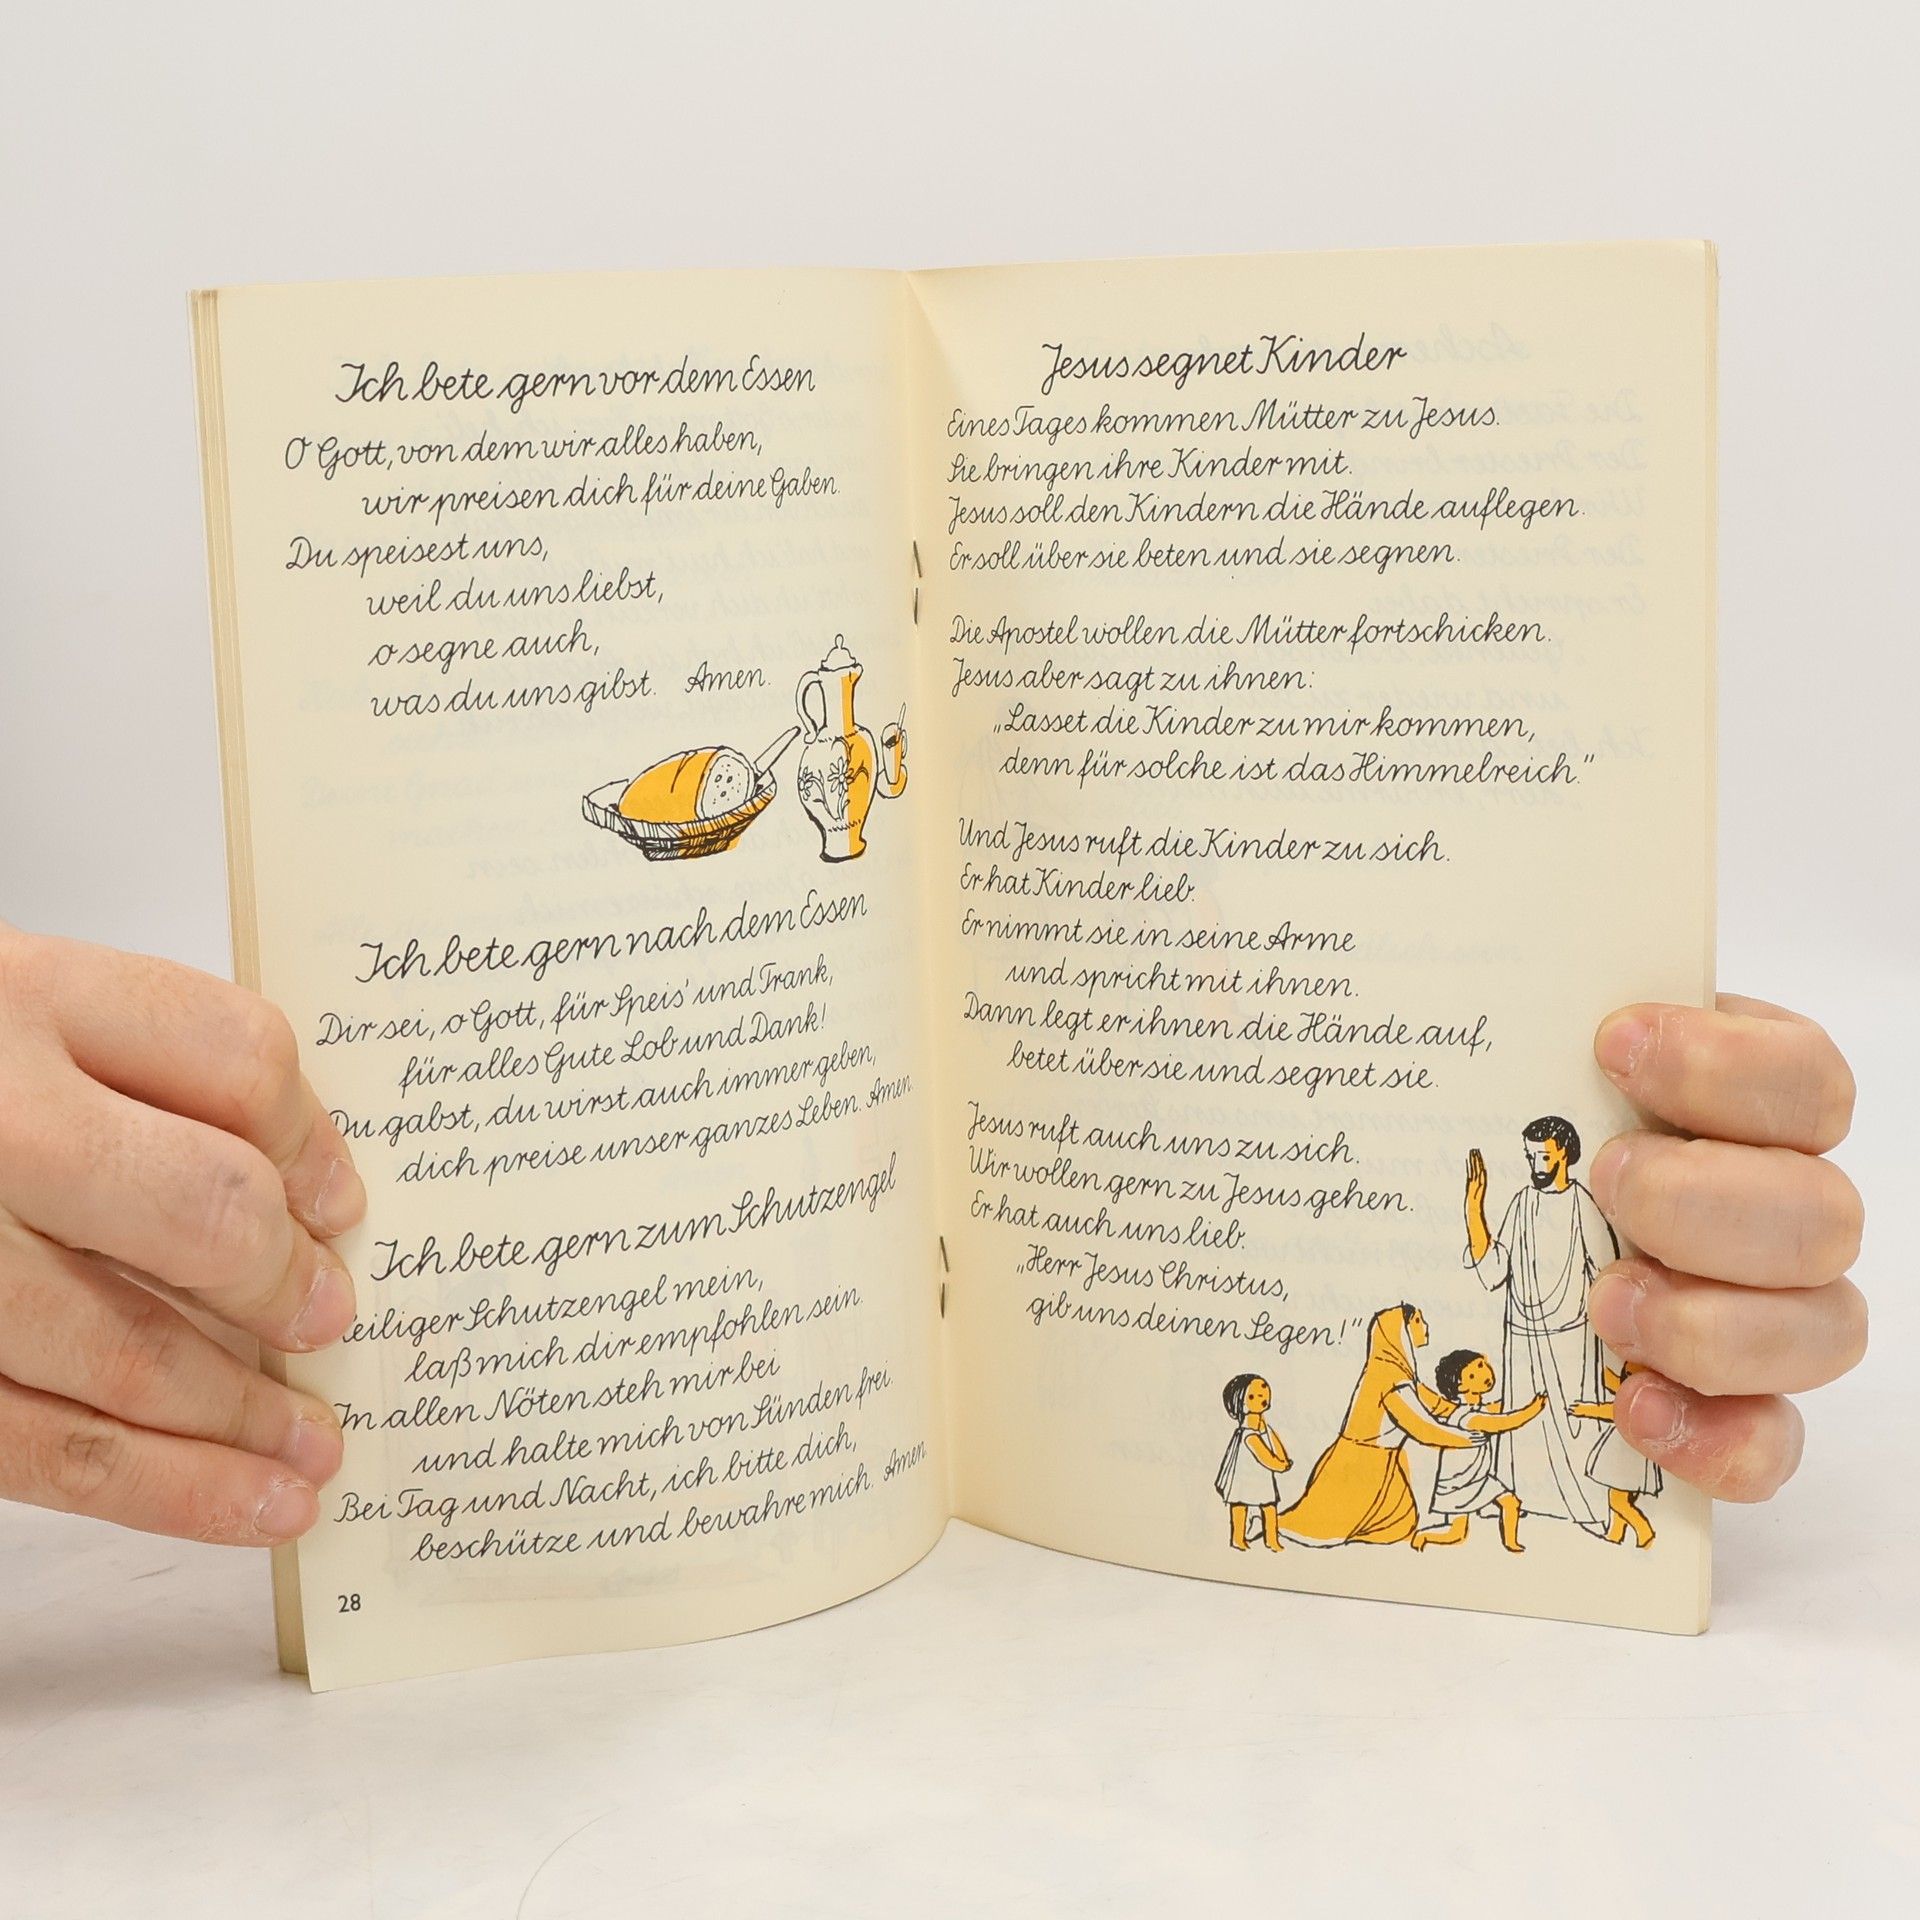 Ich bete gern vor dem Essen
O Gott, von dem wir alles haben,
wir preisen dich für deine Gaben.
Du speisest uns,
weil du uns liebst,
o segne auch,
was du uns gibst. Amen.
Ich bete gern nach dem Essen
Dir sei, o Gott, für Speis' und Trank,
für alles Gute Lob und Dank!
Du gabst, du wirst auch immer geben,
dich preise unser ganzes Leben. Amen.
Ich bete gern zum Schutzengel
eiliger Schutzengel mein,
laß mich dir empfohlen sein.
In allen Nöten steh mir bei
und halte mich von Sünden frei.
Bei Tag und Nacht, ich bitte dich,
beschütze und bewahre mich. Amen.
28
Jesus segnet Kinder
Eines Tages kommen Mütter zu Jesus.
Sie bringen ihre Kinder mit.
Jesus soll den Kindern die Hände auflegen.
Er soll über sie beten und sie segnen.
Die Apostel wollen die Mütter fortschicken.
Jesus aber sagt zu ihnen:
„Lasset die Kinder zu mir kommen,
denn für solche ist das Himmelreich."
Und Jesus ruft die Kinder zu sich.
Er hat Kinder lieb.
Er nimmt sie in seine Arme
und spricht mit ihnen.
Dann legt er ihnen die Hände auf,
betet über sie und segnet sie.
Jesus ruft auch uns zu sich.
Wir wollen gern zu Jesus gehen.
Er hat auch uns lieb.
„Herr Jesus Christus,
gib uns deinen Segen!"